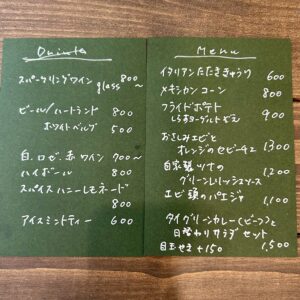 Drinks
スパークリングワイン 800~
glass
ビール/ハートランド 800
ホワイトベルグ 500
白.ロゼ.赤ワイン 700~
ハイボール 800
スパイスハニーレモネード
800
アイスミントティー 600
Menu
イタリアンたたききゅうり 600
メキシカンコーン 800
フライドポテト
しらすヨーグルトぞえ 900
おさしみエビと
オレンジのセビーチェ 1300
自家製ツナの
グリーンレリッシュソース 1,200
エビ頭のパエジャ 1,100
タイグリーンカレー(ビーフ)と
日替わりサラダ セット
目玉やき +150 1,500